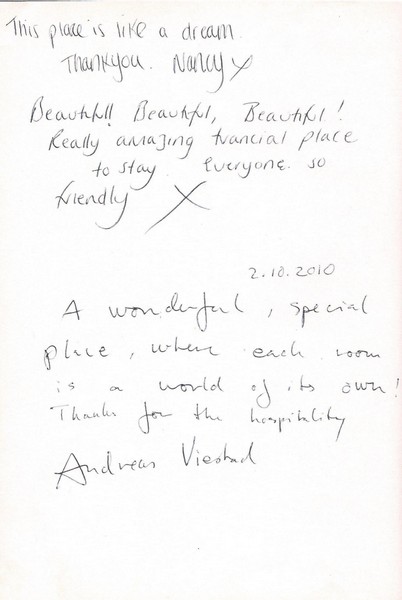 This place is like a dream.
Thankyou. Nancy x
Beautiful! Beautiful, Beautiful!
Really amazing place
to stay. Everyone so
friendly X
2.10.2010
A wonderful, special
place, where each room
is a world of its own!
Thanks for the hospitality
Andreas Viestad